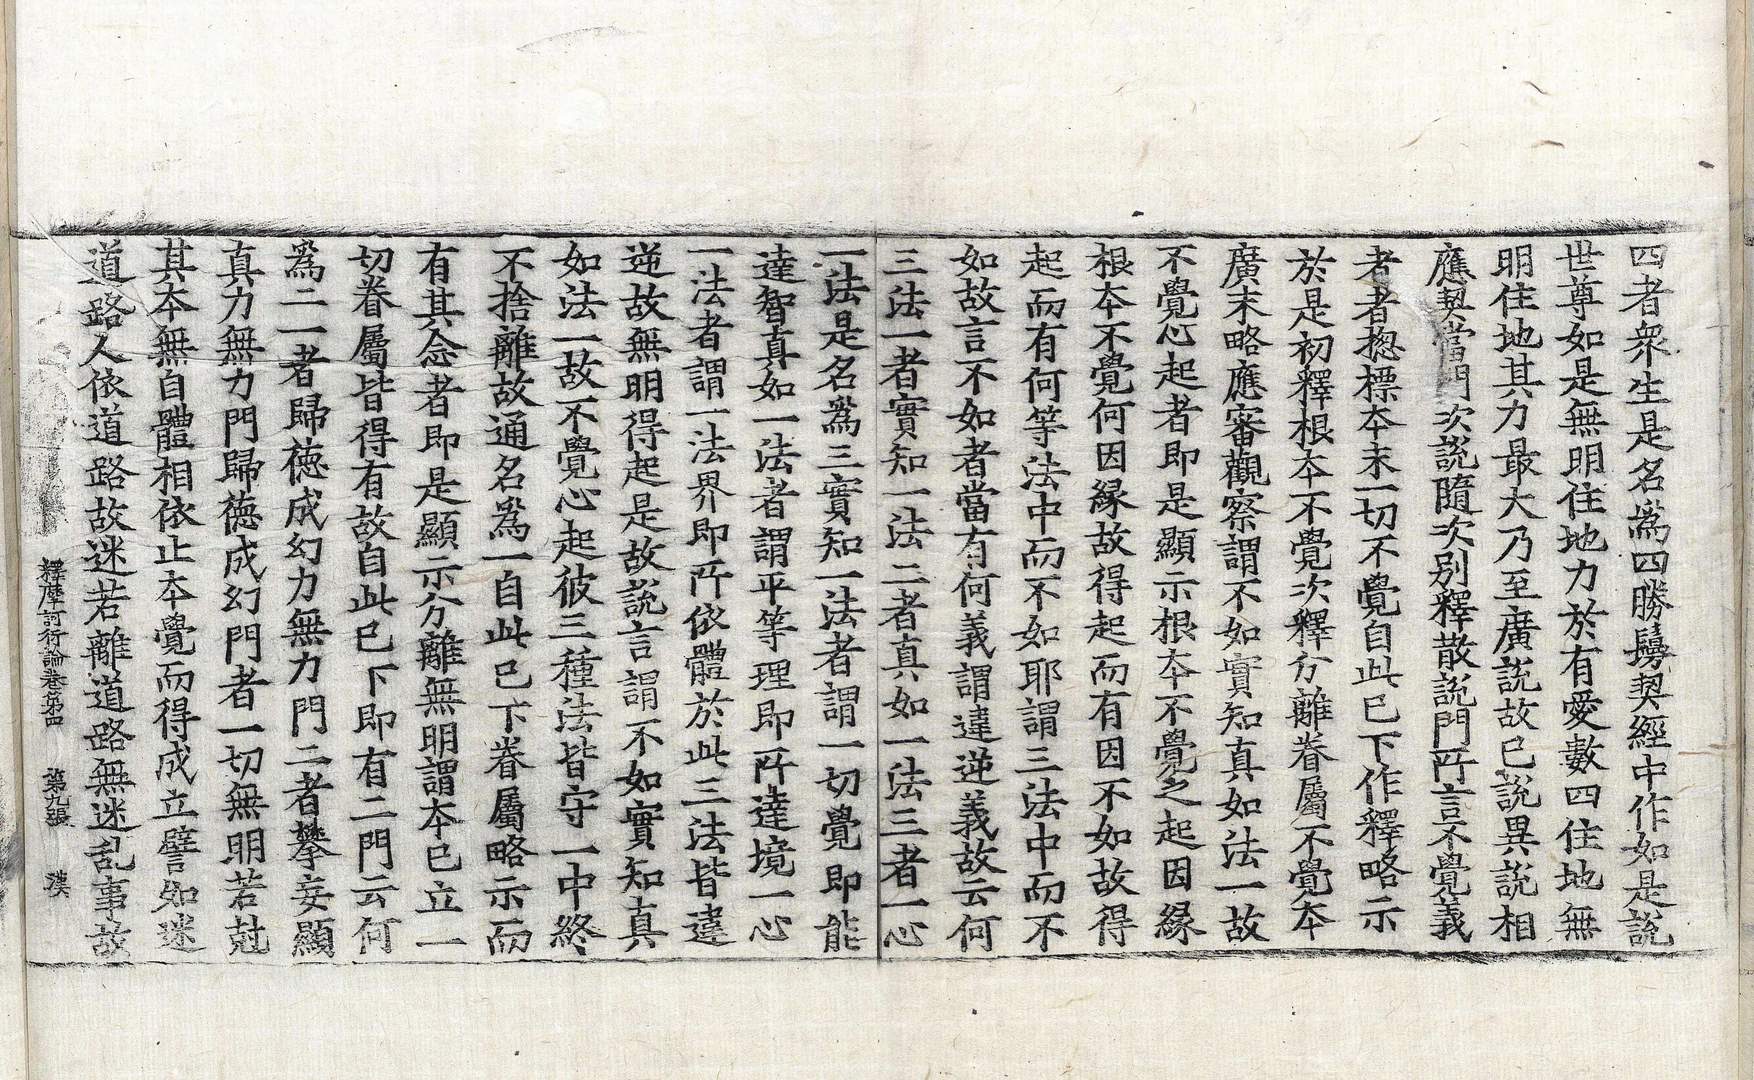 四者衆生是名爲四勝鬘契經中作如是說
世尊如是無明住地力於有愛數四住地無
明住地其力最大乃至廣說故已說異說相
應契當門次說隨次別釋散說門所言不覺義
者者揔標本末一切不覺自此已下作釋略示
於是初釋根本不覺次釋分離眷屬不覺本
廣末略應審觀察謂不如實知真如法一故
不覺心起者即是顯示根本不覺之起因縁
根本不覺何因縁故得起而有因不如故得
起而有何等法中而不如耶謂三法中而不
如故言不如者當有何義謂違逆義故云何
三法一者實知一法二者真如一法三者一心
一法是名爲三實知一法者謂一切覺即能
達智真如一法者謂平等理即所達境一心
一法者謂一法界即所依體於此三法皆違
逆故無明得起是故說言謂不如實知真
如法一故不覺心起彼三種法皆守一中終
不捨離故通名爲一自此已下眷屬略示而
有其念者即是顯示分離無明謂本已立一
切眷屬皆得有故自此已下即有二門云何
爲二一者歸德成幻力無力門二者攀妄顯
真力無力門歸德成幻門者一切無明若尅
其本無自體相依止本覺而得成立譬如迷
道路人依道路故迷若離道路無迷乱事故
釋摩訶衍論卷第四 第九張 漢